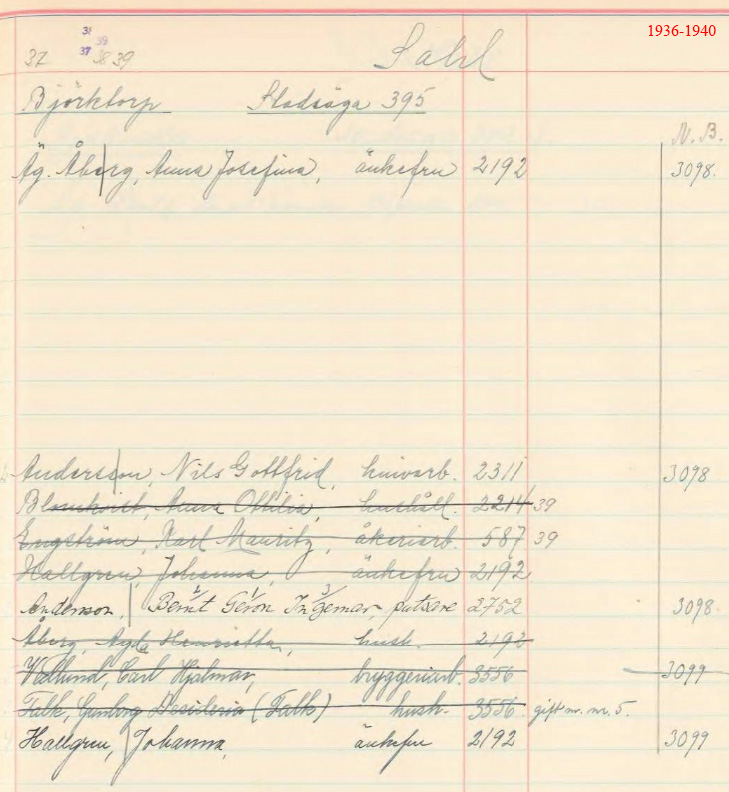 1936-1940
38
39
37
37 38 39 Sahl
Björktorp Stadsäga 395
N. B.
Äg. Åberg, Anna Josefina, änkefru 2192 3098.
Andersson, Nils Gottfrid, knivarb. 2311 3098
Blomkvist, Anna Ottilia, hushåll. 2214 39
Engström, Karl Mauritz, åkeriarb. 587 39
Hallgren, Johanna, änkefru 2192
Andersson, Bernt Göron Ingemar, putsare 2752 3098.
Åberg, Agda Henrietta, hush. 2192
Wedlund, Carl Hjalmar, bryggeriarb. 3556 3099
Falk, Gunborg Desideria (Falk) hush. 3556. gift m. nr. 5.
Hallgren, Johanna, änkefru 2192 3099